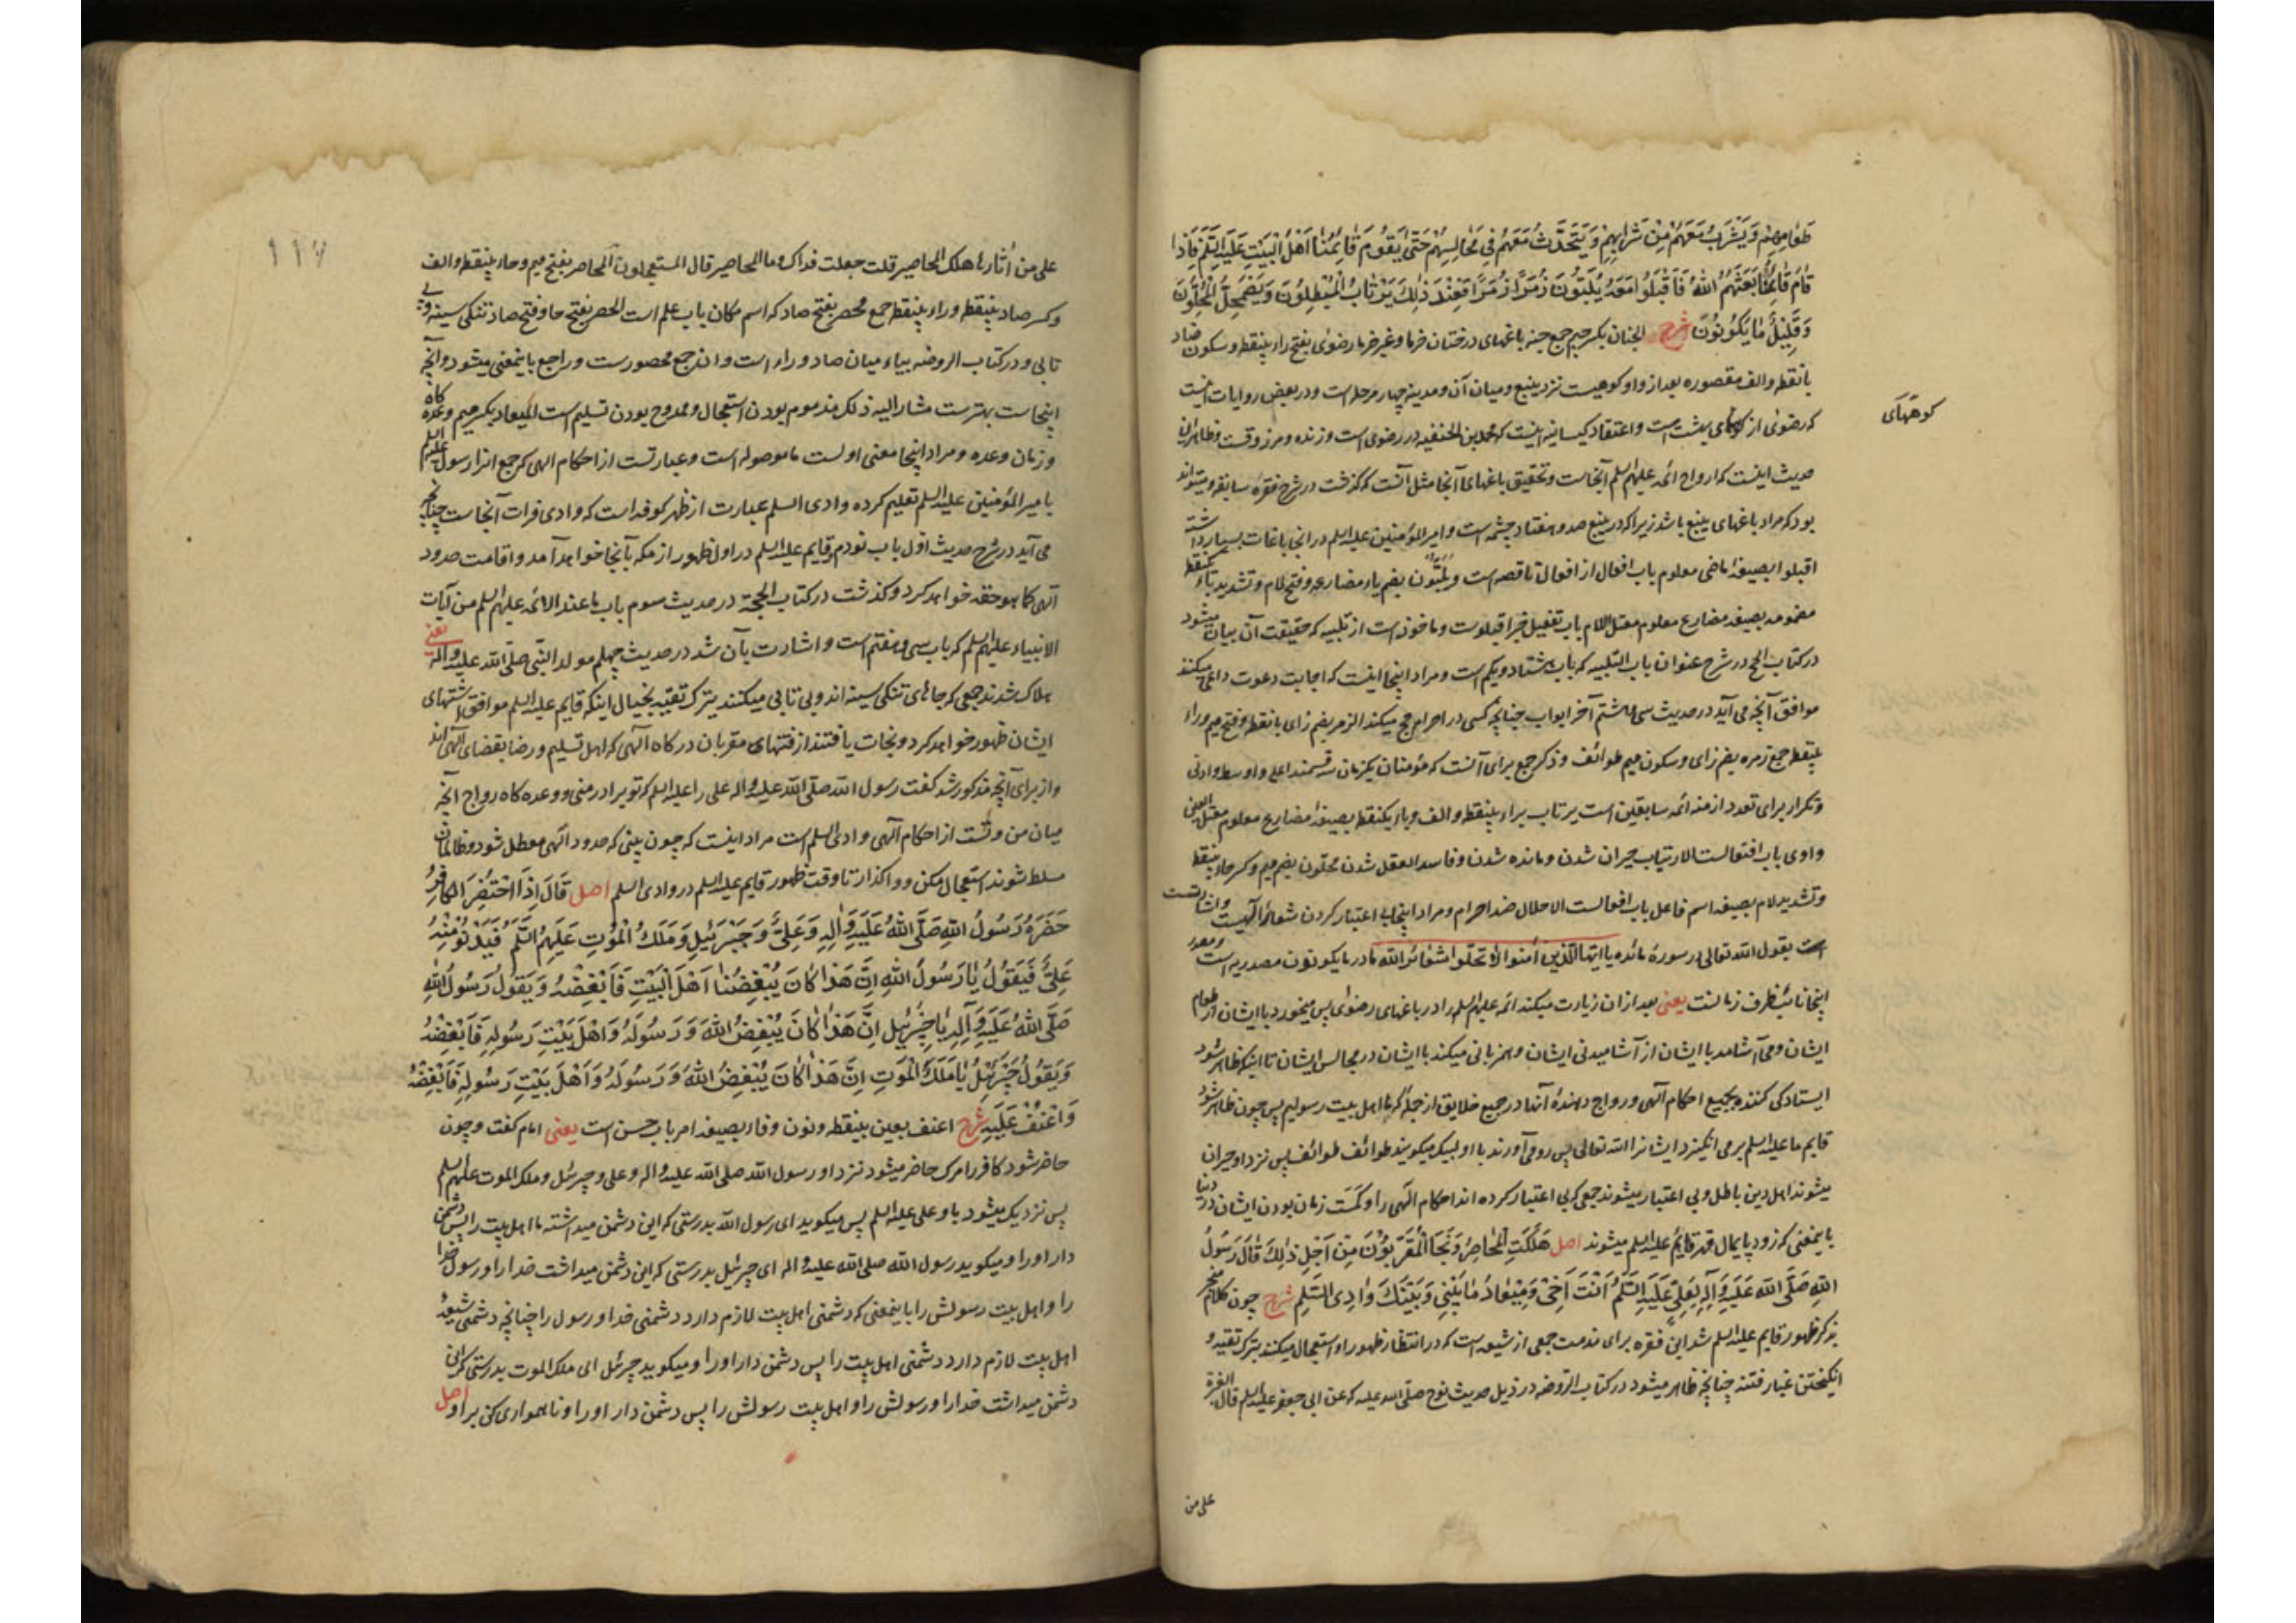 طَعامِهِمْ وَيَشْرَبُ مَعَهُمْ مِنْ شَرابِهِمْ وَيَتَحَدَّثُ مَعَهُمْ فِي مَجالِسِهِمْ حَتّى يَقُومَ قائِمُنا اَهْلَ الْبَيْتِ عَلَيْهِ السَّلَمُ فَاِذا
قامَ قائِمُنا بَعَثَهُمُ اللهُ فَاَقْبَلُوا مَعَهُ يُلَبُّونَ زُمَرًا زُمَرًا فَعِنْدَ ذلِكَ يَرْتابُ الْمُبْطِلُونَ وَيَضْمَحِلُّ الْمُحِلُّونَ
وَقَلِيلٌ ما يَكُونُونَ شرح الجنان بکسر جیم جمع جنه باغهای درختان خرما و غیر خرما رضوی بفتح راء بینقطه و سکون ضاد
بانقطه والف مقصوره بعد از واو کوهیست نزد ینبع و میان آن و مدینه چهار مرحله است و در بعض روایات اینست
که رضوی از کوههای بهشت است و اعتقاد کیسانیه اینست که محمد بن الحنفیه در رضوی است و زنده و مرزوقست و ظاهر این
کوههای
حدیث اینست که ارواح ائمه علیهم السلم آنجاست و تحقیق باغهای آنجا مثل آنست که گذشت در شرح فقرهٔ سابقه و میتواند
بود که مراد باغهای ینبع باشد زیرا که در ینبع صد و هفتاد چشمه است و امیر المؤمنین علیه السلم در آنجا باغات بسیار داشته
اقبلوا بصیغهٔ ماضی معلوم باب افعال از افعال ناقصه است و یلبّون بضم یاء مضارعه و فتح لام و تشدید باء یکنقطه
مضمومه بصیغهٔ مضارع معلوم معتل اللام باب تفعیل خبر اقبلوست و ماخوذ است از تلبیه که حقیقت آن بیان میشود
در کتاب الحج در شرح عنوان باب التلبیه که باب هشتاد و یکم است و مراد اینجا اینست که اجابت دعوت داعی میکنند
موافق آنچه می آید در حدیث سی و هشتم آخر ابواب چنانچه کسی در احرام حج میکند الزمر بضم زای بانقطه و فتح میم و راء
بینقطه جمع زمره بضم زای و سکون میم طوائف و ذکر جمع برای آنست که مؤمنان یکزمان سه قسمند اعلی و اوسط و ادنی
و تکرار برای تعدد ازمنه ائمه سابقین است یرتاب براء بینقطه و الف و باء یکنقطه بصیغهٔ مضارع معلوم معتل العین
واوی باب افتعالست الارتیاب حیران شدن و مانده شدن و فاسد العقل شدن محلّون بضم میم و کسر حاء بینقطه
و تشدید لام بصیغه اسم فاعل باب افعالست الاحلال ضد احرام و مراد اینجا بی اعتبار کردن شعائر آلهیست و اشارتست
است بقول الله تعالی در سورهٔ مائده یا ایها الذین آمنوا لا تحلّوا شعائر الله ما در ما یکونون مصدریه است و مصدر
اینجا نائب ظرف زمانست یعنی بعد از ان زیارت میکند ائمه علیهم السلم را در باغهای رضوی پس میخورد با ایشان از طعام
ایشان و می آشامد با ایشان از آشامیدنی ایشان و همزبانی میکند با ایشان در مجالس ایشان تا اینکه ظاهر شود
ایستادگی کننده بجمیع احکام آلهی و رواج دهندهٔ آنها در جمیع خلایق از جملهٔ که ما اهل بیت رسولیم پس چون ظاهر شود
قایم ما علیه السلم بر می انگیزد ایشانرا الله تعالی پس رو می آورند با او لبیک میگویند طوائف طوائف پس نزد او حیران
میشوند اهل دین باطل و بی اعتبار میشوند جمعی که بی اعتبار کرده اند احکام آلهی را و کمست زمان بودن ایشان در دنیا
باینمعنی که زود پایمال قهر قایم علیه السلم میشوند اصل هَلَكَتِ الْمَحاصِرُ وَنَجَا الْمُقَرَّبُونَ مِنْ اَجْلِ ذلِكَ قالَ رَسُولُ
اللهِ صَلَّى الله عَلَيْهِ وَآلِهِ لِعَلِيٍّ عَلَيْهِ السَّلَمُ اَنْتَ اَخِي وَمِيعادُ ما بَيْنِي وَبَيْنَكَ وادِي السَّلمِ شرح چون کلام منجر
بذکر ظهور قایم علیه السلم شد این فقره برای مذمت جمعی از شیعه است که در انتظار ظهور او استعجال میکنند بترک تقیه و
انگیختن غبار فتنه چنانچه ظاهر میشود در کتاب الروضه در ذیل حدیث نوح صلی الله علیه که عن ابی جعفر علیه السلم قال الغبرة
علی من
۱۱۷
علی من أثارها هلك المحاصير قلت جعلت فداك وما المحاصير قال المستعجلون المحاصر بفتح میم و حاء بینقطه و الف
و کسر صاد بینقطه و راء بینقطه جمع محصر بفتح صاد که اسم مکان باب علم است الحصر بفتح حا و فتح صاد تنگی سینه و بی
تابی و در کتاب الروضه بیاء میان صاد و راء است و ان جمع محصورست و راجع باینمعنی میشود و آنچه
اینجاست بهترست مشار الیه ذلک مذموم بودن استعجال و ممدوح بودن تسلیم است المیعاد بکسر میم وعده گاه
و زمان وعده و مراد اینجا معنی اولست ما موصوله است و عبارتست از احکام الهی که جمع انرا رسول علیه السلم
بامیر المؤمنین علیه السلم تعلیم کرده وادی السلم عبارت از ظهر کوفه است که وادی فرات آنجاست چنانچه
می آید در شرح حدیث اول باب نودم و قایم علیه السلم در اول ظهور از مکه بآنجا خواهد آمد و اقامت حدود
آلهی کما هو حقه خواهد کرد و گذشت در کتاب الحجة در حدیث سوم باب ما عند الائمه علیهم السلم من آیات
الانبیاء علیهم السلم که باب سی و هفتم است و اشارت بآن شد در حدیث چهلم مولد النبی صلی الله علیه واله یعنی
هلاک شدند جمعی که جاهای تنگی سینه اند و بی تابی میکنند بترک تقیه بخیال اینکه قایم علیه السلم موافق اشتهای
ایشان ظهور خواهد کرد و نجات یافتند از فتنهای مقربان درگاه آلهی که اهل تسلیم و رضا بقضای آلهی اند
و از برای آنچه مذکور شد گفت رسول الله صلی الله علیه واله علی را علیه السلم که تو برادر منی و وعده گاه رواج آنچه
میان من و تست از احکام آلهی وادی السلم است مراد اینست که چون بینی که حدود آلهی معطل شود و ظالمان
مسلط شوند استعجال مکن و واگذار تا وقت ظهور قایم علیه السلم در وادی السلم اصل قالَ اِذَا احْتُضِرَ الْكافِرُ
حَضَرَهُ رَسُولُ اللهِ صَلَّى اللهُ عَلَيْهِ وَالِهِ وَعَلِيٌّ وَجَبْرَئِيلُ وَمَلَكُ الْمَوْتِ عَلَيْهِمُ السَّلَمُ فَيَدْنُو مِنْهُ
عَلِيٌّ فَيَقُولُ يا رَسُولَ اللهِ اِنَّ هَذا كانَ يُبْغِضُنا اَهْلَ الْبَيْتِ فَاَبْغِضْهُ وَيَقُولُ رَسُولُ اللهِ
صَلَّى اللهُ عَلَيْهِ وَآلِهِ يا جَبْرَئِيلُ اِنَّ هَذا كانَ يُبْغِضُ اللهَ وَرَسُولَهُ وَاَهْلَ بَيْتِ رَسُولِهِ فَاَبْغِضْهُ
وَيَقُولُ جَبْرَئِيلُ يا مَلَكَ الْمَوْتِ اِنَّ هَذا كانَ يُبْغِضُ اللهَ وَرَسُولَهُ وَاَهْلَ بَيْتِ رَسُولِهِ فَاَبْغِضْهُ
وَاعْنُفْ عَلَيْهِ شرح اعنف بعین بینقطه و نون و فاء بصیغه امر باب حسن است یعنی امام گفت و چون
حاضر شود کافر را مرک حاضر میشود نزد او رسول الله صلی الله علیه واله و علی و جبرئل و ملک الموت علیهم السلم
پس نزدیک میشود باو علی علیه السلم پس میگوید ای رسول الله بدرستی که این دشمن میداشته ما اهل بیت را پس دشمن
دار او را و میگوید رسول الله صلی الله علیه واله ای جبرئیل بدرستی که این دشمن میداشت خدا را و رسول خدا
را و اهل بیت رسولش را باینمعنی که دشمنی اهل بیت لازم دارد دشمنی خدا و رسول را چنانچه دشمنی شیعهٔ
اهل بیت لازم دارد دشمنی اهل بیت را پس دشمن دار او را و میگوید جبرئل ای ملک الموت بدرستی که این
دشمن میداشت خدا را و رسولش را و اهل بیت رسولش را پس دشمن دار او را و ناهمواری کن بر او اصل